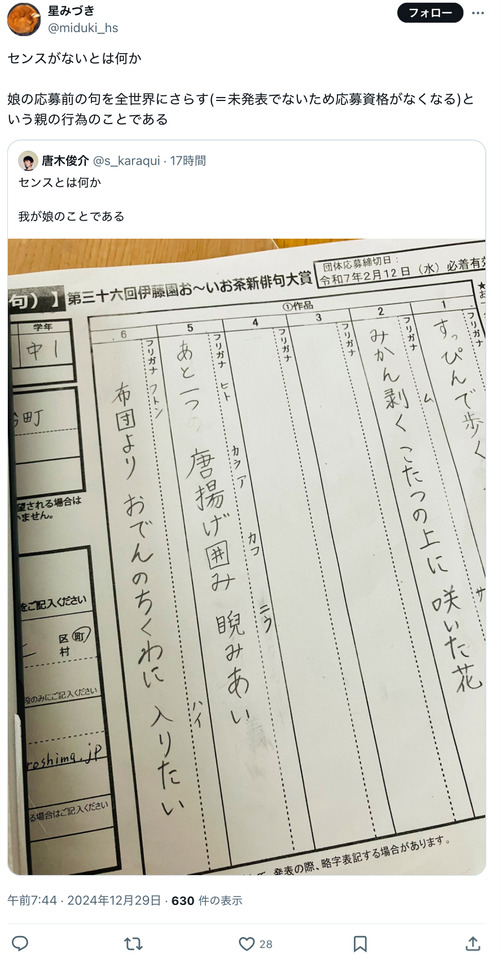 星みづき
@miduki_hs
フォロー
センスがないとは何か
娘の応募前の句を全世界にさらす(＝未発表でないため応募資格がなくなる)と
いう親の行為のことである
唐木俊介 @s_karaqui · 17時間
センスとは何か
我が娘のことである
句）】第三十六回伊藤園お～いお茶新俳句大賞
団体応募締切日：
令和7年2月12日（水）必着有効
①作品
1
すっぴんで歩く
2
フリガナ
ム
サ
みかん剥くこたつの上に 咲いた花
3
フリガナ
4
フリガナ
5
フリガナ ヒト カラア カコ ニラ ハイ
あと一つ 唐揚げ囲み 睨みあい
6
フリガナ フトン
布団より おでんのちくわに 入りたい
学年
中1
町
望される場合は
いません。
をご記入ください
区 町
村
段のみにご記入ください
roshima.jp
る場合はご記入ください
発表の際、略字表記する場合があります。
午前7:44 · 2024年12月29日 · 630 件の表示
28